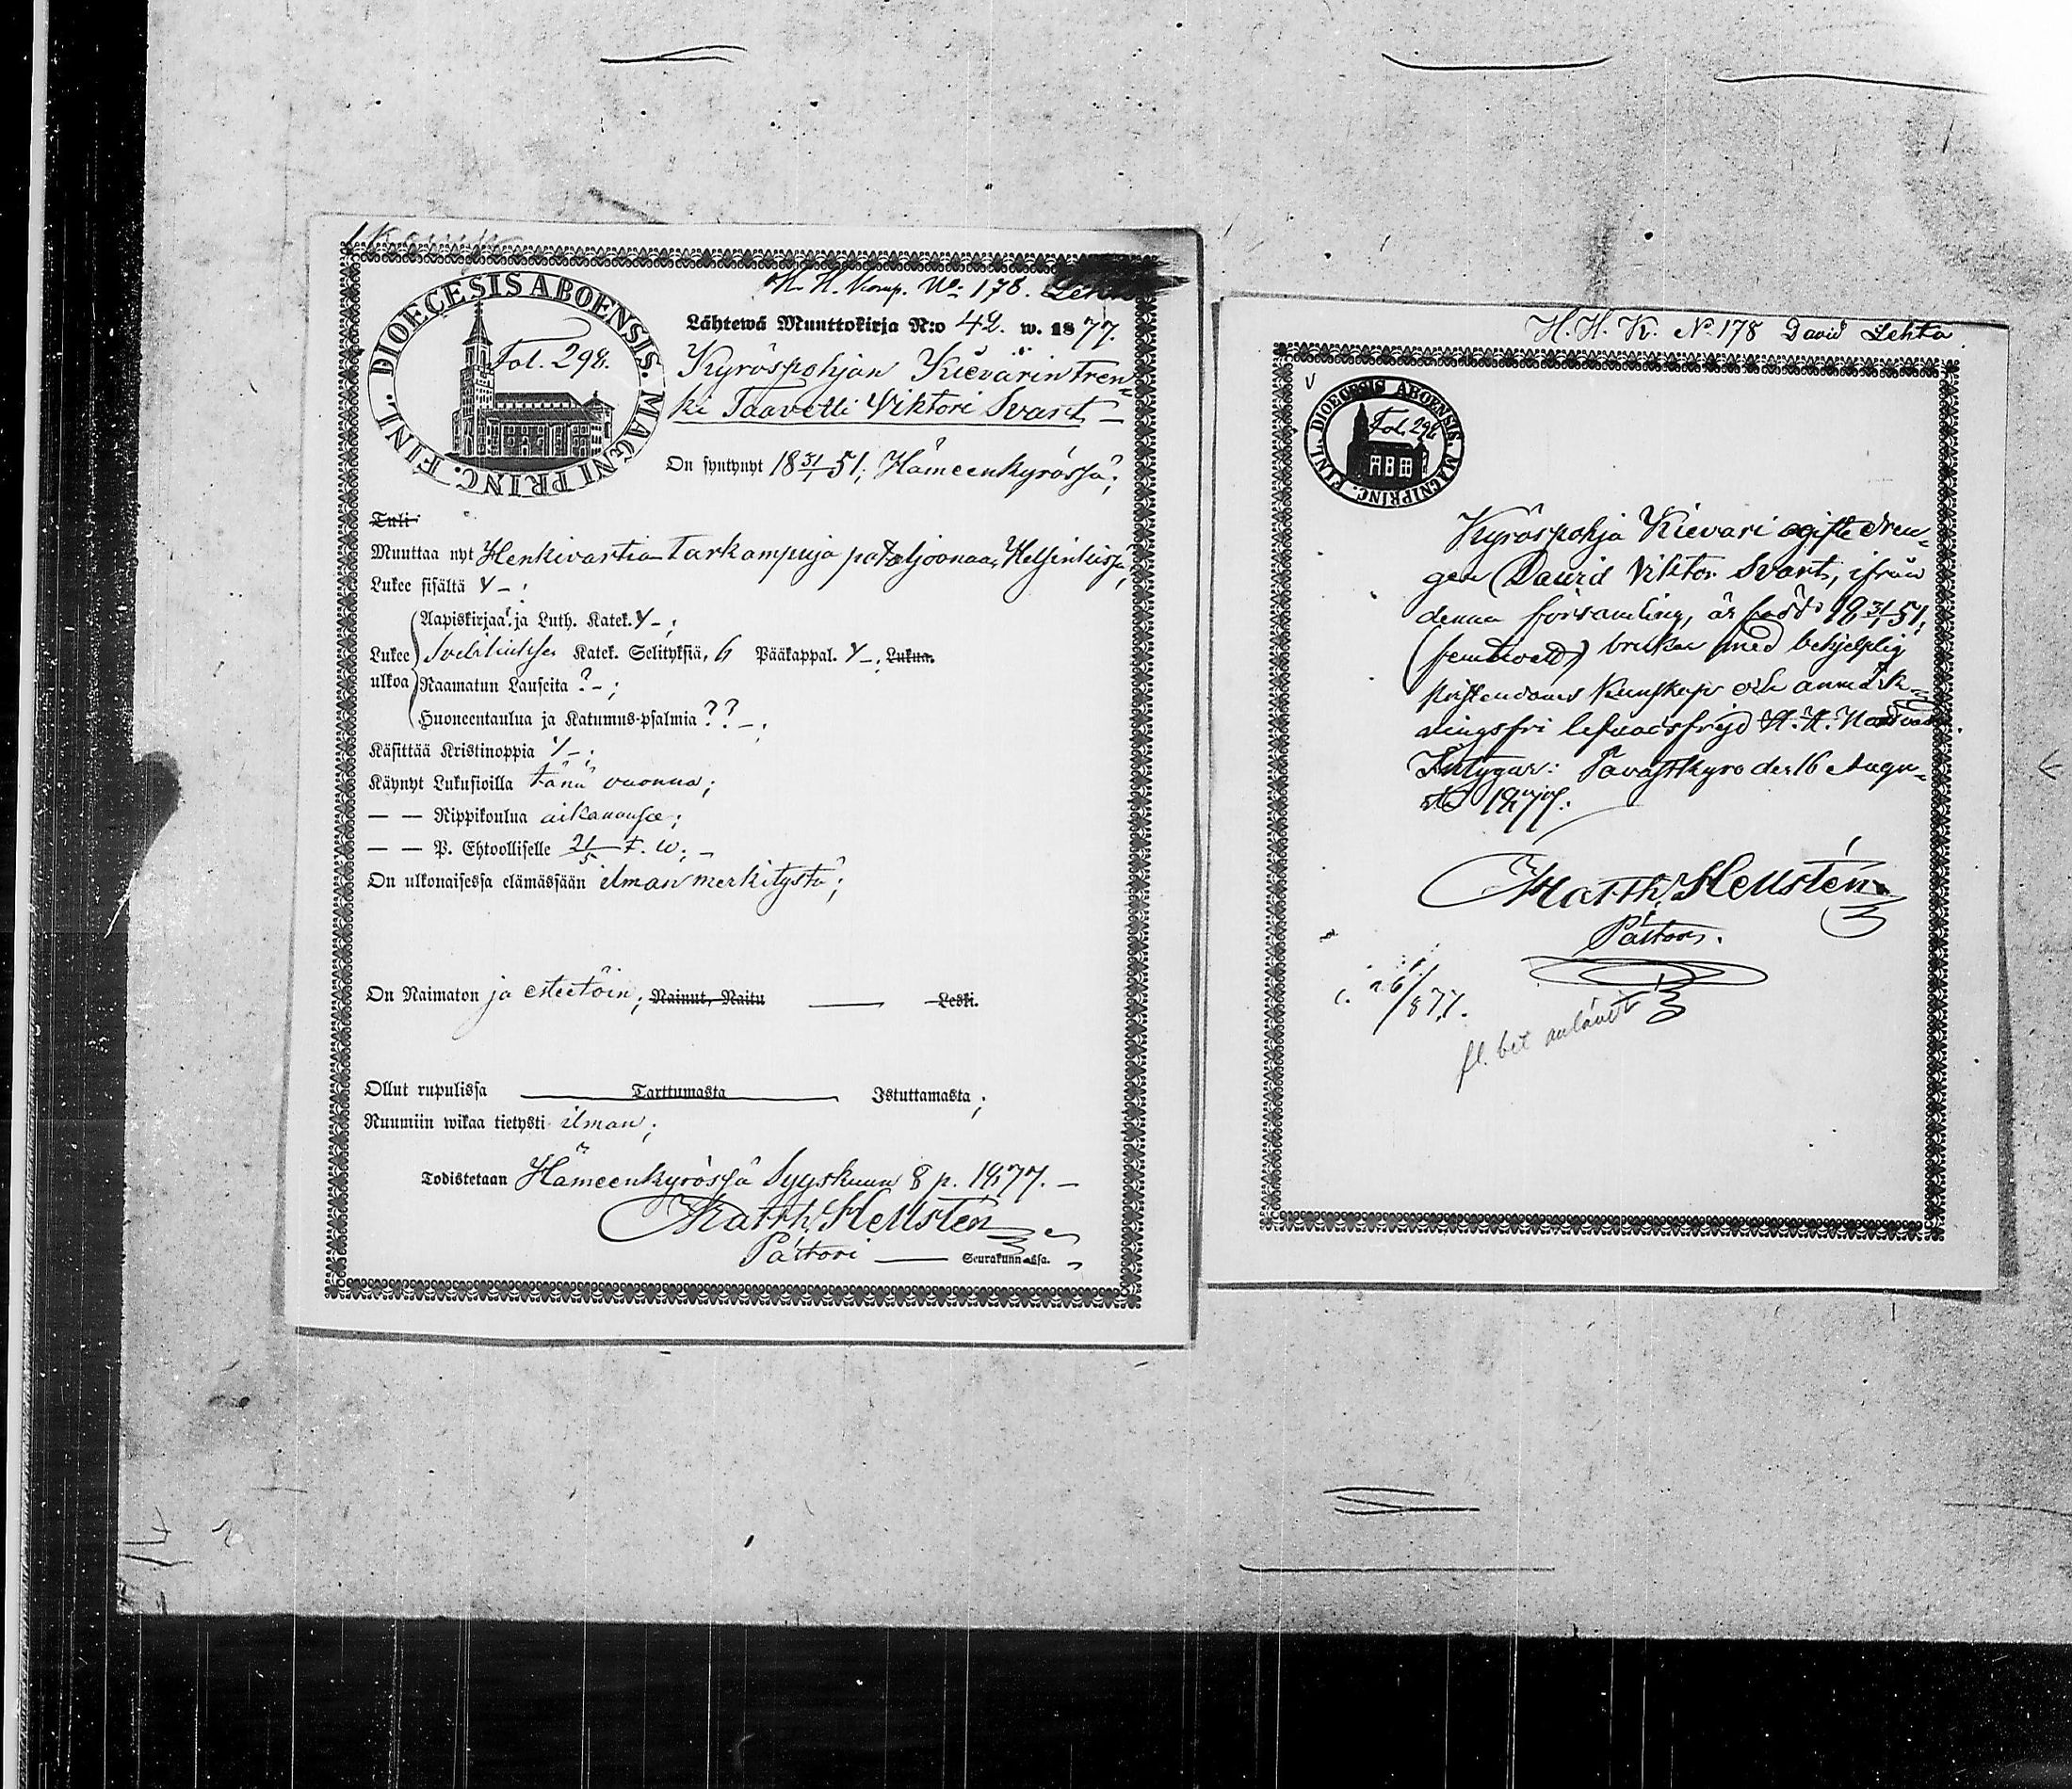 H. H. Komp. No 178. Lehto
DIOECESIS ABOENSIS. MAGNI PRINC. FINL.
Fol. 298.
Lähtewä Muuttokirja N:o 42. w. 1877.
Kyröspohjan Kievarin tren-
ki Taavetti Viktori Svart –
On syntynyt 18 31/1 51; Hämeenkyrössä;
Tuli
Muuttaa nyt Henkivartia Tarkampuja pataljoonaan Helsinkissä;
Lukee sisältä
Aapiskirjaa ja Luth. Katek.
Lukee Katek. Selityksiä, 6 Pääkappal. Lukua.
ulkoa Raamatun Lauseita ? – ;
Huoneentaulua ja Katumus-psalmia ?? – ;
Käsittää Kristinoppia
Käynyt Lukusioilla tänä vuonna;
— — Rippikoulua aikanansa;
— — P. Ehtoolliselle 21/5 t. w. ; –
On ulkonaisessa elämässään ilman merkitystä;
On Naimaton ja esteetöin; Nainut, Naitu — Leski.
Ollut rupulissa Tarttumasta Istuttamasta ;
Ruumiin wikaa tietysti ilman;
Todistetaan Hämeenkyrössä Syyskuun 8 p. 1877. –
Matth. Hellstén
Pastori — Seurakunnassa.
H. H. K. No 178 David Lehto
DIOECESIS ABOENSIS. MAGNI PRINC. FINL.
Fol. 298
Kyröspohja Kievari ogifte dren-
gen David Viktor Svart, ifrån
denna församling, är född 18 31/1 51,
med behjelplig
kristendoms kunskap och anmärk-
ningsfri lefnadsfrejd
Intygar: Tavastkyro den 16 Augu-
sti 1877.
Matth. Hellstén
Pastor.
26/8 77.